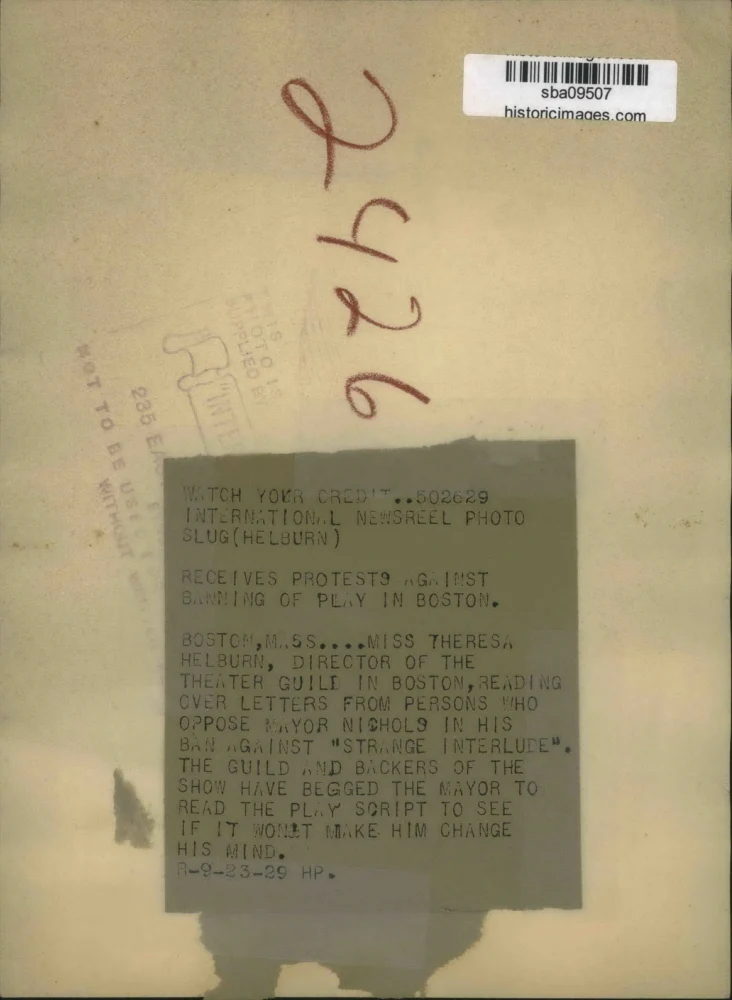 sba09507
historicimages.com
2426
THIS
PHOTO IS
SUPPLIED BY
"INTE
235 EA
NOT TO BE USE
WITHOUT
WATCH YOUR CREDIT..502629
INTERNATIONAL NEWSREEL PHOTO
SLUG(HELBURN)
RECEIVES PROTESTS AGAINST
BANNING OF PLAY IN BOSTON.
BOSTON,MASS....MISS THERESA
HELBURN, DIRECTOR OF THE
THEATER GUILD IN BOSTON,READING
OVER LETTERS FROM PERSONS WHO
OPPOSE MAYOR NICHOLS IN HIS
BAN AGAINST "STRANGE INTERLUDE".
THE GUILD AND BACKERS OF THE
SHOW HAVE BEGGED THE MAYOR TO
READ THE PLAY SCRIPT TO SEE
IF IT WON'T MAKE HIM CHANGE
HIS MIND.
R-9-23-29 HP.